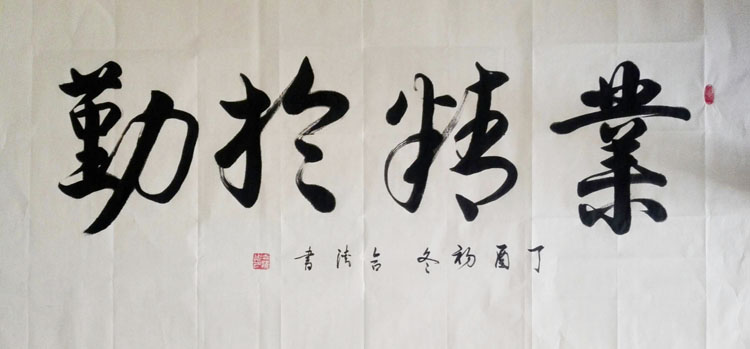 業精於勤
丁酉初冬合法書